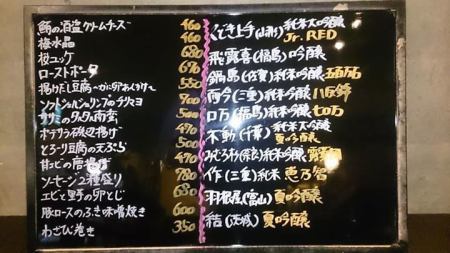 鮪の酒盗クリームチーズ 460
梅水晶 460
桜ユッケ 680
ローストポーク 670
揚げだし豆腐〜かに卵あんかけ〜 550
ソフトシェルシュリンプのチリマヨ 700
500
ポテサラ磯辺揚げ 470
とろーり豆腐の天ぷら 500
甘エビの唐揚げ 470
ソーセージ2種盛り 780
エビと野の卵とじ 680
豚ロースのふき味噌焼き 600
わさび巻き 350
くどき上手(山形)純米大吟醸 Jr.RED
飛露喜(福島)吟醸
鍋島(佐賀)純米吟醸 五百万石
而今(三重)純米吟醸 八反錦
ロ万(福島)純米吟醸 七ロ万
不動(千葉)純米大吟醸 夏の吟醸
みむろ杉(奈良)純米吟醸
作(三重)純米 恵乃智
羽根屋(富山)夏吟醸
結(茨城)夏吟醸